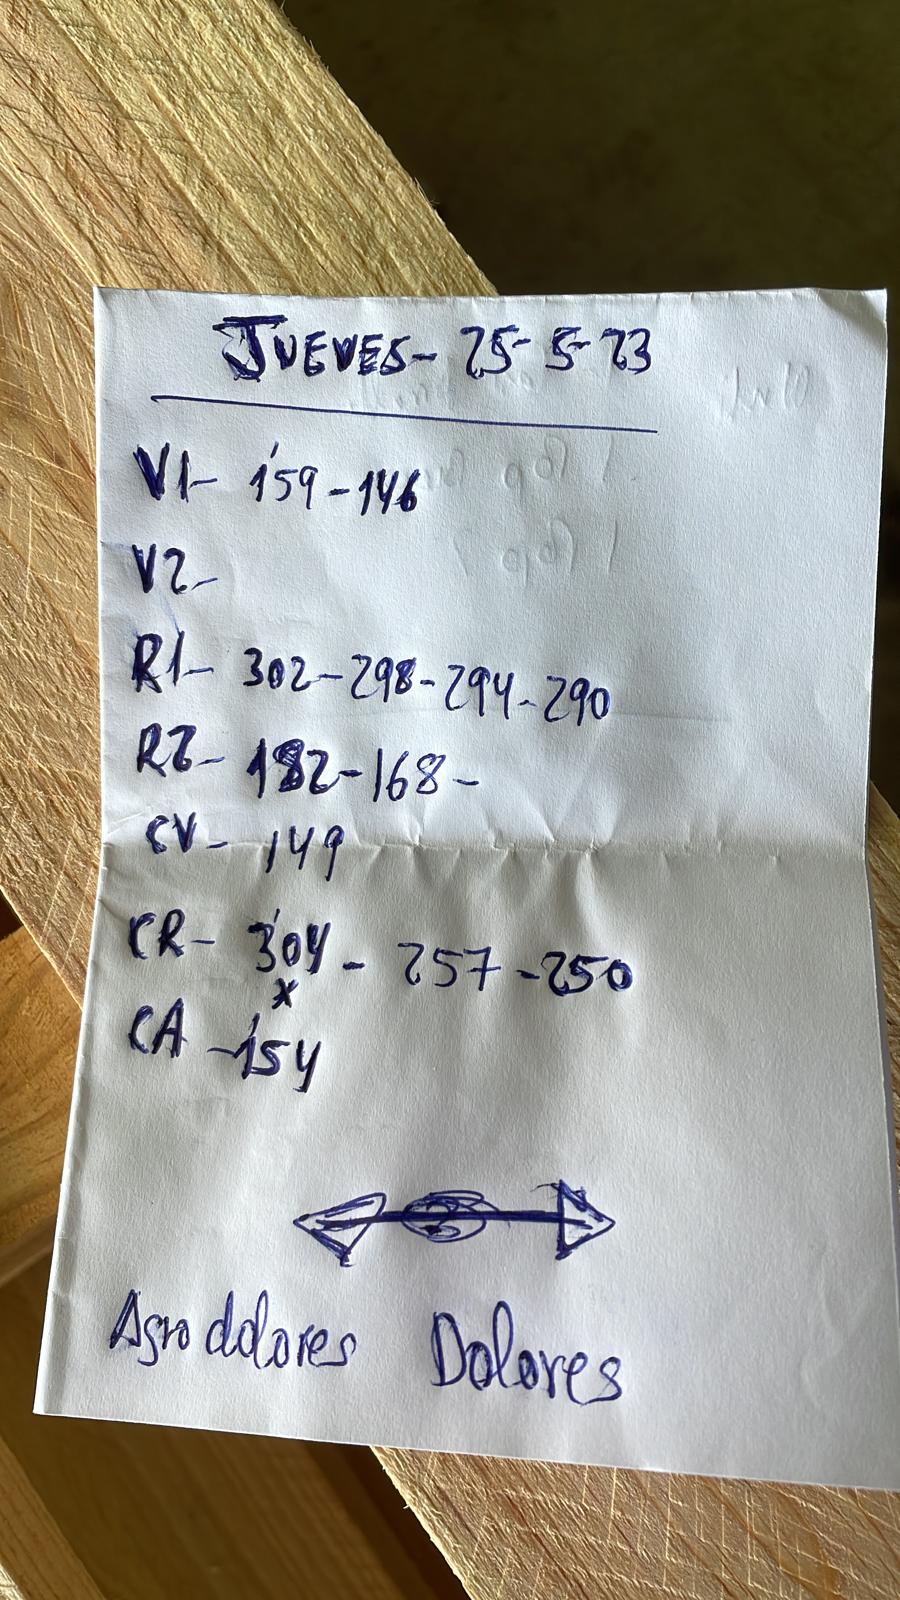 JUEVES- 25-5-23
V1- 159-146
V2-
R1- 302-298-294-290
R2- 182-168-
CV- 149
CR- 304 - 257 -250
x
CA -154
Agrodolores Dolores